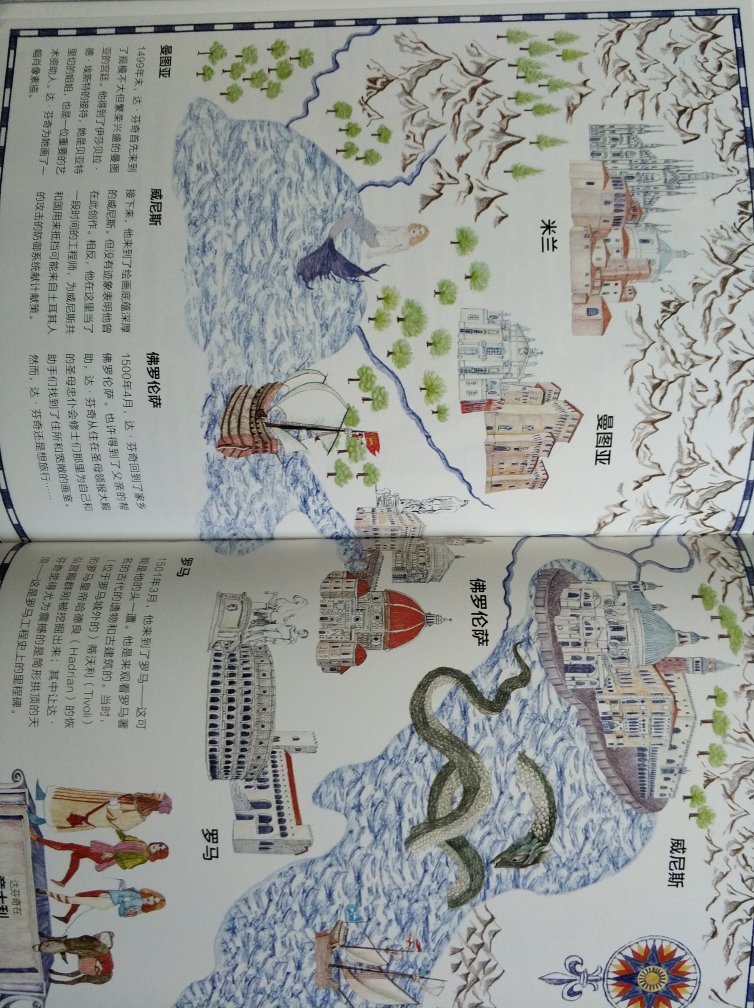 米兰
曼图亚
威尼斯
佛罗伦萨
罗马
曼图亚
1499年末,达·芬奇首先来到
了规模不大但繁荣兴盛的曼图
亚的宫廷。他得到了伊莎贝拉·
德·埃斯特的接待,她是贝亚特
里切的姐姐,也是一位重要的艺
术资助人。达·芬奇为她画了一
幅肖像素描。
威尼斯
接下来,他来到了绘画底蕴深厚
的威尼斯。但没有迹象表明他曾
在此创作。相反,他在这里当了
一段时间的工程师,为威尼斯共
和国用来抵挡可能来自土耳其人
的攻击的防御系统献计献策。
佛罗伦萨
1500年4月,达·芬奇回到了家乡
佛罗伦萨。也许得到了父亲的帮
助,达·芬奇从住在圣母领报大殿
的圣母忠仆会修士们那里为自己和
助手们找到了住所和宽敞的画室。
然而,达·芬奇还是想旅行……
罗马
1501年3月,他来到了罗马——这可
能是他的头一遭。他是来观看罗马著
名的古代的遗物和古建筑的。当时,
(位于罗马城外的)蒂沃利(Tivoli)
的罗马皇帝哈德良(Hadrian)的恢
弘宫殿群刚被挖掘出来;其中让达·
芬奇觉得尤为震撼的是筒形拱顶的天
顶,这是罗马工程史上的里程碑。
达芬奇在
意大利